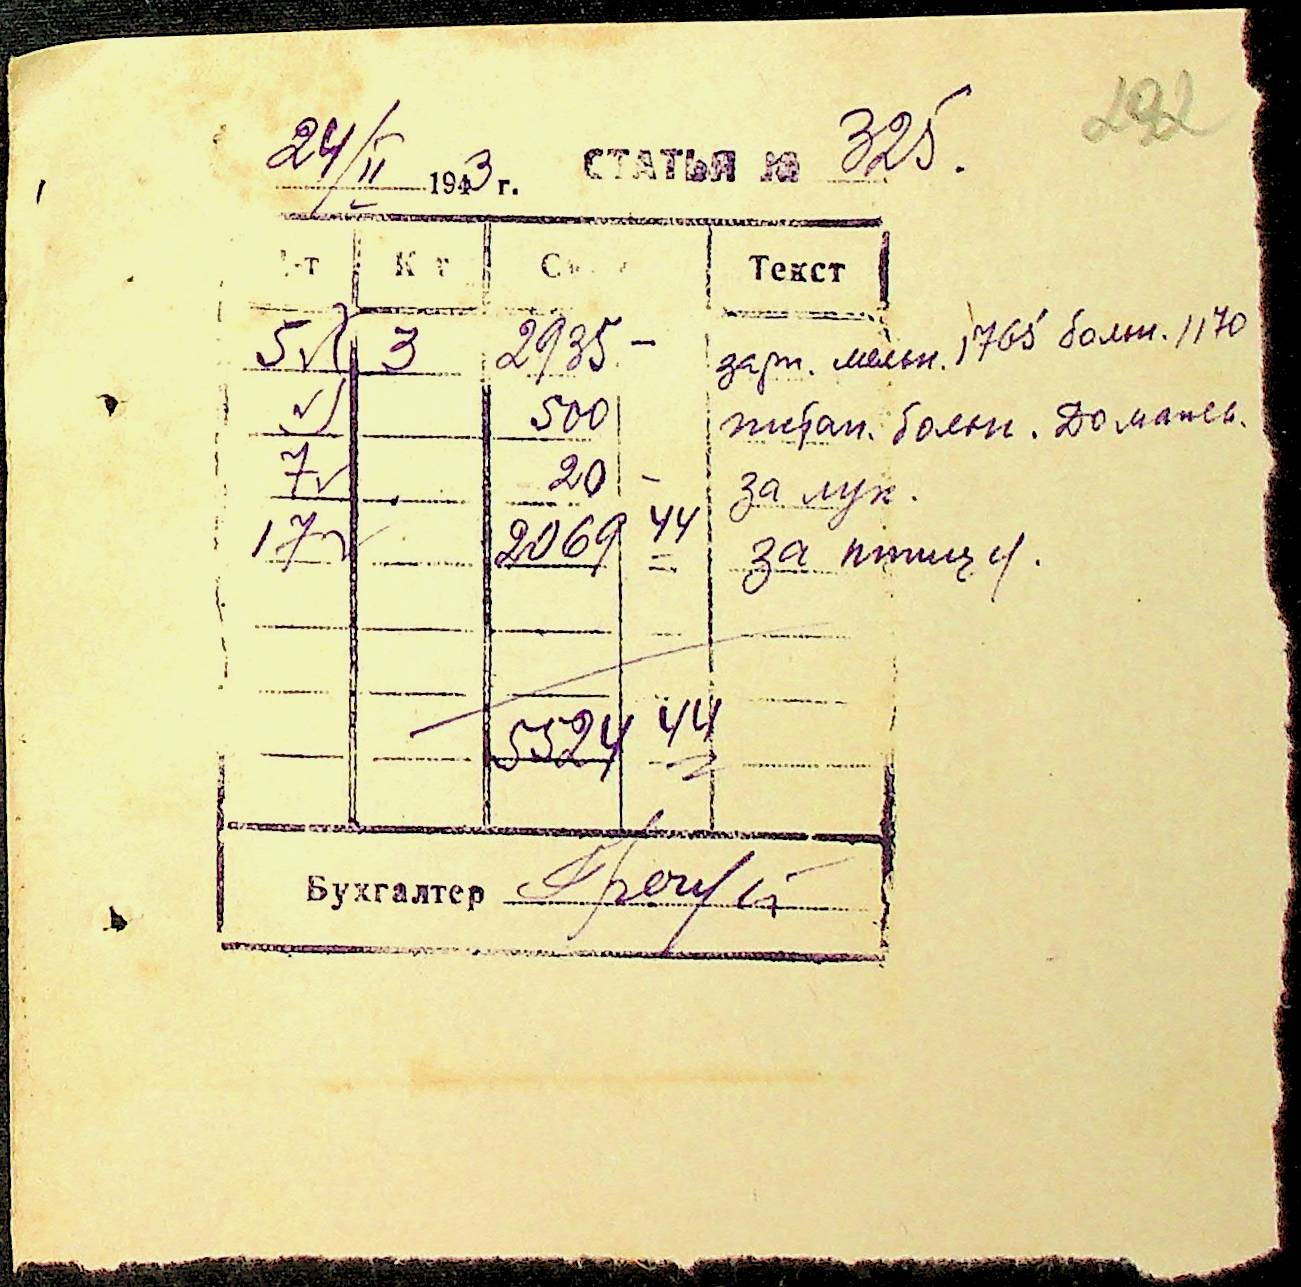 292
24/II 1943 г. СТАТЬЯ № 325.
Д-т К-т Сумма Текст
5 3 2935 – зарп. мельн. 1765 больн. 1170
500 питан. больн. Домашев.
7 20 - за лук.
17 2069 44 за птицу.
5524 44
Бухгалтер